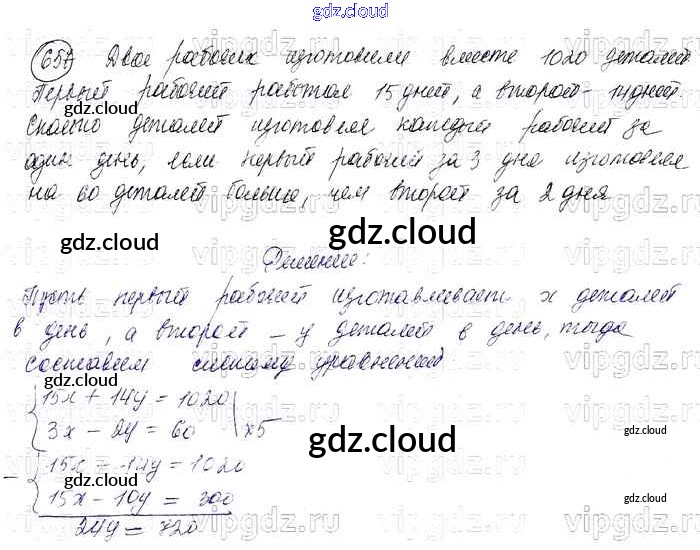 gdz.cloud
657 Двое рабочих изготовили вместе 1020 деталей
Первый рабочий работал 15 дней, а второй - 14 дней.
Сколько деталей изготовил каждый рабочий за
один день, если первый рабочий за 3 дня изготовил
на 60 деталей больше, чем второй за 2 дня
Решение:
Пусть первый рабочий изготавливает x деталей
в день, а второй – y деталей в день, тогда
составим систему уравнений
15x + 14y = 1020
3x - 2y = 60 | x5
15x + 14y = 1020
15x - 10y = 300
24y = 720
gdz.cloud
gdz.cloud
gdz.cloud
gdz.cloud
gdz.cloud
gdz.cloud
gdz.cloud
gdz.cloud
gdz.cloud
gdz.cloud
vipgdz.ru